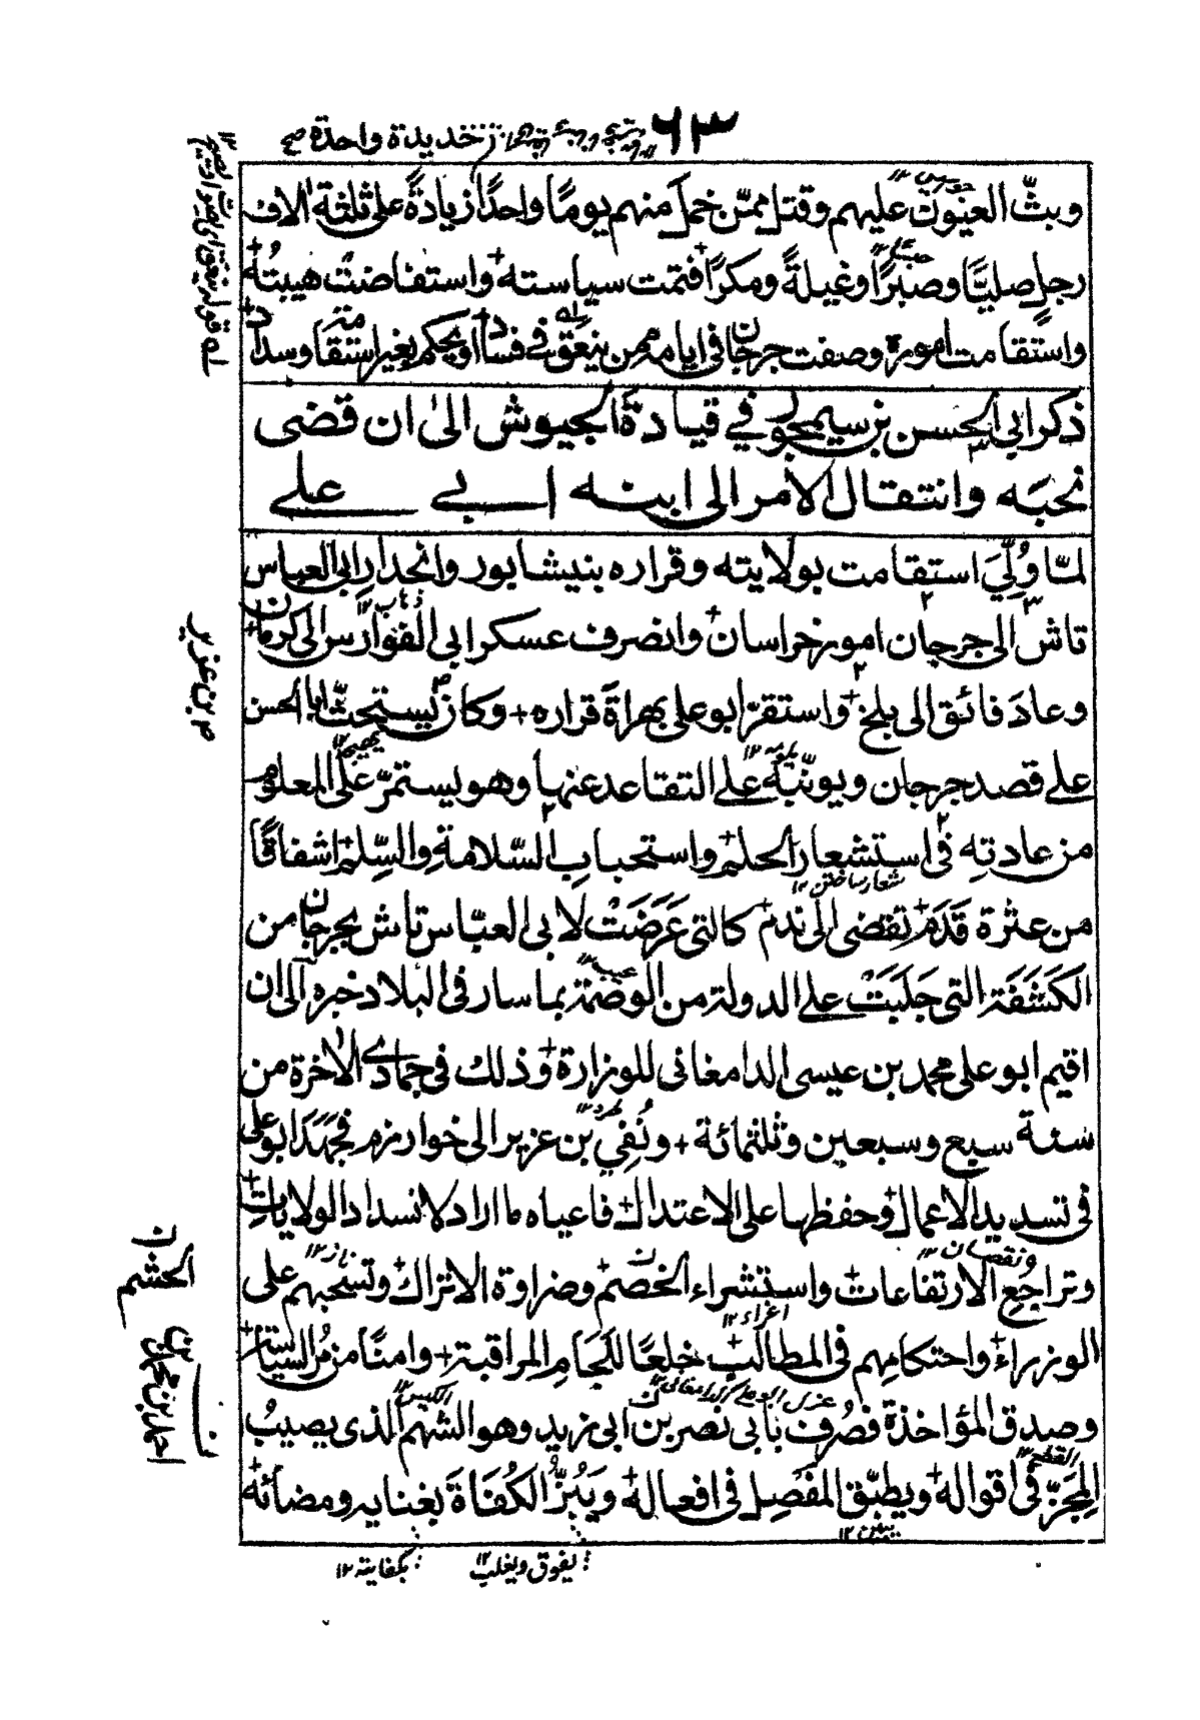 ٦٣
خديدة واحدة صح
وبثّ العيون عليهم وقتل ممّن خمل منهم يومًا واحدًا زيادةً على ثلثة الاف
رجل صلبًا وصبرًا وغيلةً ومكرًا فتمت سياسته واستفاضت هيبته
واستقامت اموره وصفت جرجان فى ايامه ممن ينعق فى فساد او يحكم بغير استقامة وسداد
ذكر ابي الحسن بن سيمجور في قيادة الجيوش الى ان قضى
نحبه وانتقال الامر الى ابنه ابي علي
لمّا وُلّيَ استقامت بولايته وقراره بنيشابور وانحدار ابى العباس
تاش الى جرجان امور خراسان وانصرف عسكر ابى الفوارس الى كرمان
وعاد فائق الى بلخ واستقرّ ابو على بهراة قراره وكان يستحثّ ابا الحسن
على قصد جرجان ويونّبه على التقاعد عنها وهو يستمرّ على المعلوم
من عادته فى استشعار الحلم واستحباب السّلامة والسِّلم اشفاقًا
من عثرة قَدَم تفضى الى ندم كالتى عَرَضَتْ لابى العبّاس تاش بجرجان من
الكَشَفَة التى جَلَبَتْ على الدولة من الوضمة بما سار فى البلاد خبره الى ان
اقيم ابو على محمد بن عيسى الدامغانى للوزارة وذلك فى جمادى الاخرة من
سنة سبع وسبعين وثلثمائة ونُفِيَ بن عزير الى خوارزم فجهد ابو على
فى تسديد الاعمال وحفظها على الاعتدال فاعياه ما اراد لانسداد الولايات
وتراجع الارتفاعات واستشراء الخصم وضراوة الاتراك وتسحبهم على
الوزراء واحتكامهم فى المطالب خلعًا للجام المراقبة وامنًا من مُرّ السياسة
وصدق المؤاخذة فصُرف بابى نصر بن ابى زيد وهو الشهم الذى يصيبُ
المِحَزّ فى اقواله ويطبّق المفصِل فى افعاله ويَبُزُّ الكُفاةَ بغنايه ومضائه
يفوق ويغلب ١٢
بكفايته ١٢